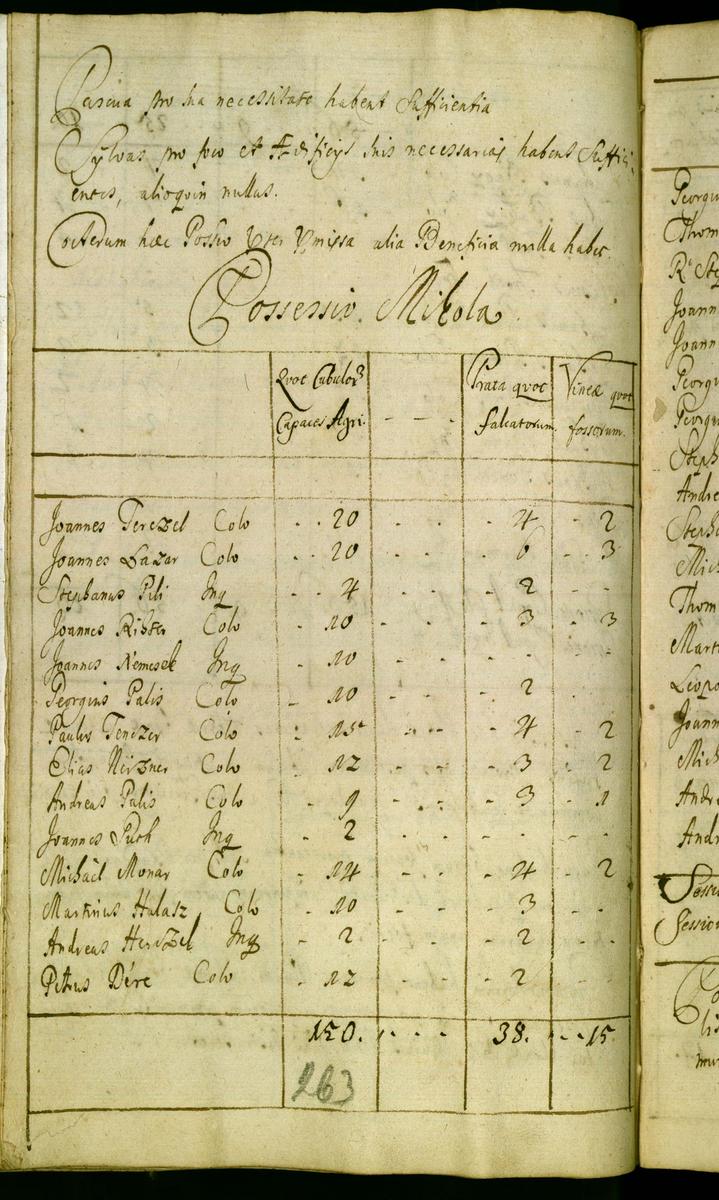 Pascua pro sua necessitate habent sufficientia
Sylvas pro foco et Ædificijs suis necessarias habent suffici
entes, alioquin nullas.
Cæterum hæc Possio alia Beneficia nulla habet.
Possessio Mikola
Quot Cubulor Capaces Agri. - - - Prata quot falcatorum. Vineæ quot fossorum.
Joannes Terczel Colo - - 20 - - - - 4 - 2
Joannes Lazar Colo - - 20 - - - - 6 - - 3
Stephanus Pili Inq - - 4 - - - - 2 - -
Joannes Rister Colo - 10 - - - - 3 - - 3
Joannes Nemesek Inq - 10 - - - - - - -
Georgius Palis Colo - 10 - - - - 2 - -
Paulus Tenczer Colo - 15 - - - - 4 - 2
Elias Neizner Colo - 12 - - - - 3 - 2
Andreas Palis Colo - 9 - - - - 3 - 1
Joannes Puch Inq - 2 - - - - - - -
Michaël Monar Colo - 14 - - - - 4 - 2
Martinus Halasz Colo - 10 - - - - 3 - -
Andreas Herczel Inq - 2 - - - - 2 - -
Petrus Dére Colo - 12 - - - - 2 - -
150. - - - 38. - - 15
263
Georgiu
Thom
Joann
Joann
Georgi
Georgi
Steph
Andre
Steph
Mich
Thom
Mart
Leopo
Joann
Mich
Andr
And
Sessi
Session